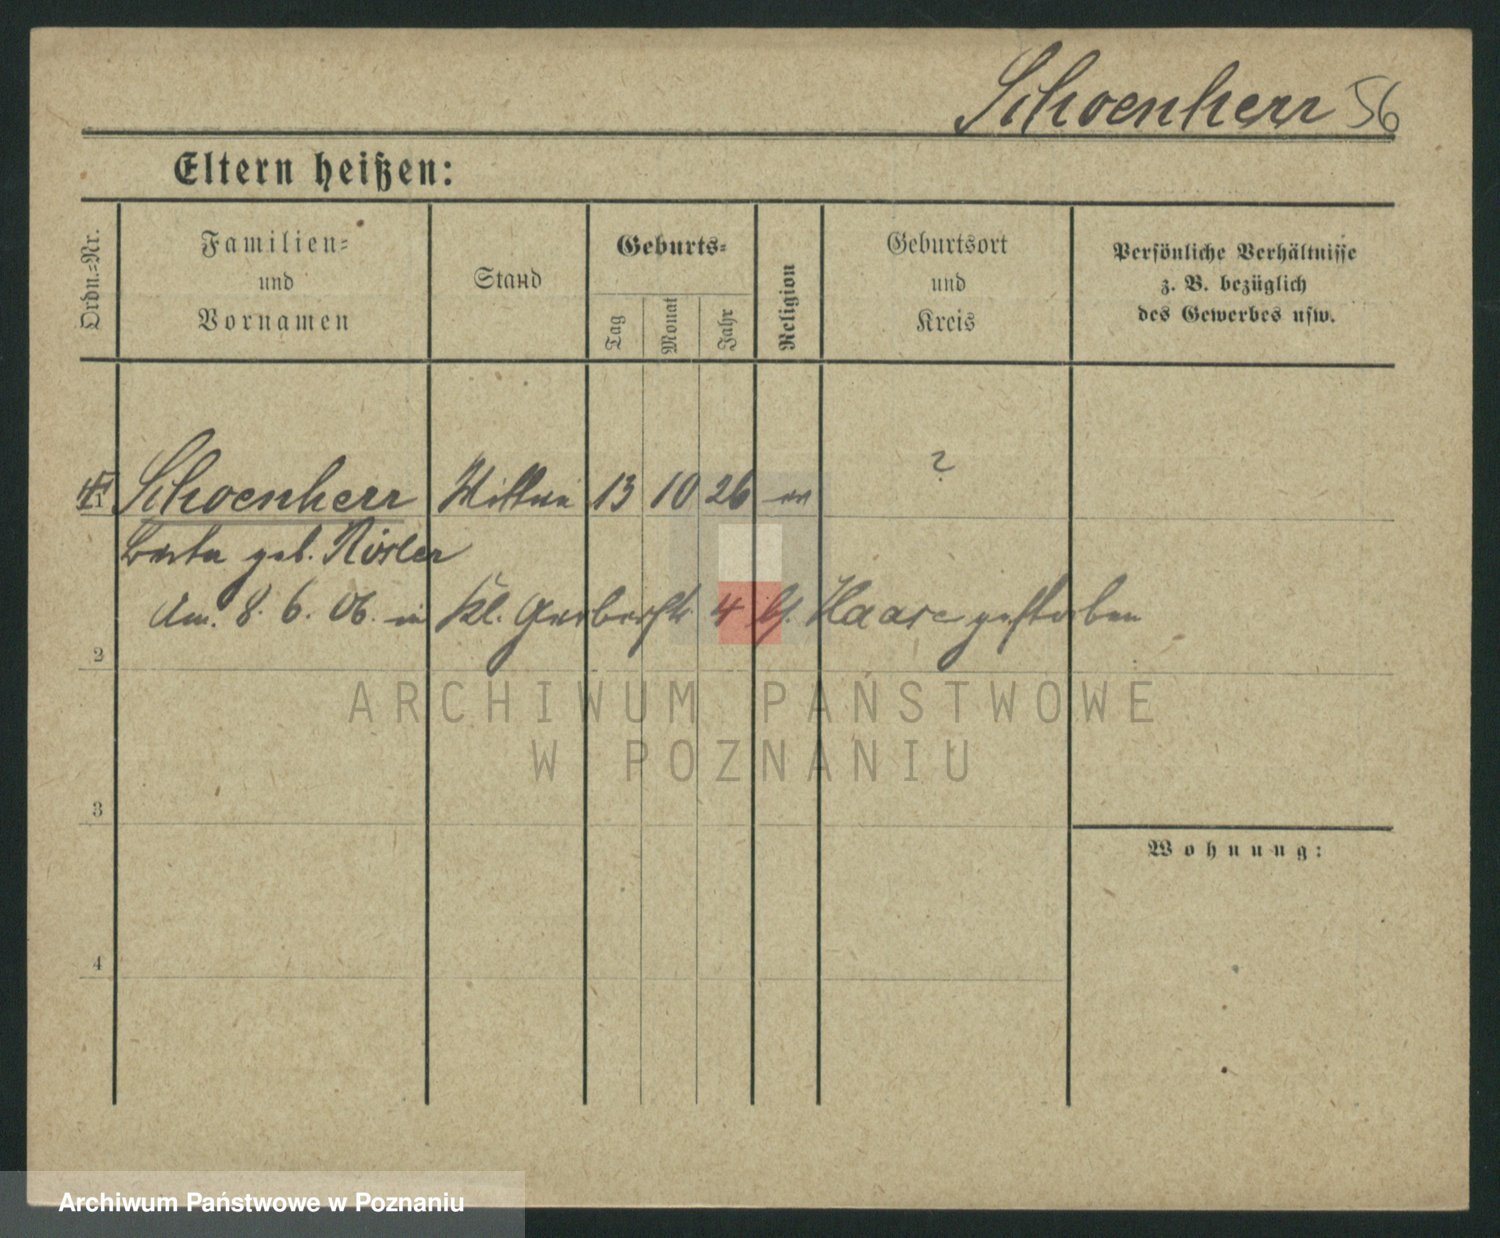 Schoenherr 56
Eltern heißen:
Ordn.-Nr.
Familien-
und
Vornamen
Stand
Geburts-
Tag
Monat
Jahr
Religion
Geburtsort
und
Kreis
Persönliche Verhältnisse
z. B. bezüglich
des Gewerbes usw.
Schoenherr Wittwe 13 10 26 ev ?
geb. Rösler
Am. 8. 6. 06. in Kl. Gerberstr 4 b/. Haase gestorben
2
3
4
Wohnung:
ARCHIWUM PAŃSTWOWE
W POZNANIU
Archiwum Państwowe w Poznaniu